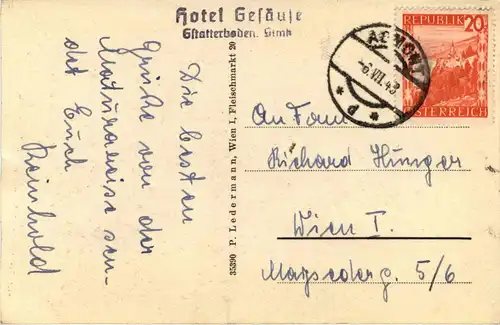 Hotel Gesäuse
Gstatterboden. Stmk
Die besten
Grüße von der
Maturareise sen-
det Euch
Reinhold
35390 P. Ledermann, Wien I, Fleischmarkt 20
ADMONT
-6.VII.48
REPUBLIK 20
ÖSTERREICH
An Fam
Richard Hunger
Wien I.
Maysederg. 5/6